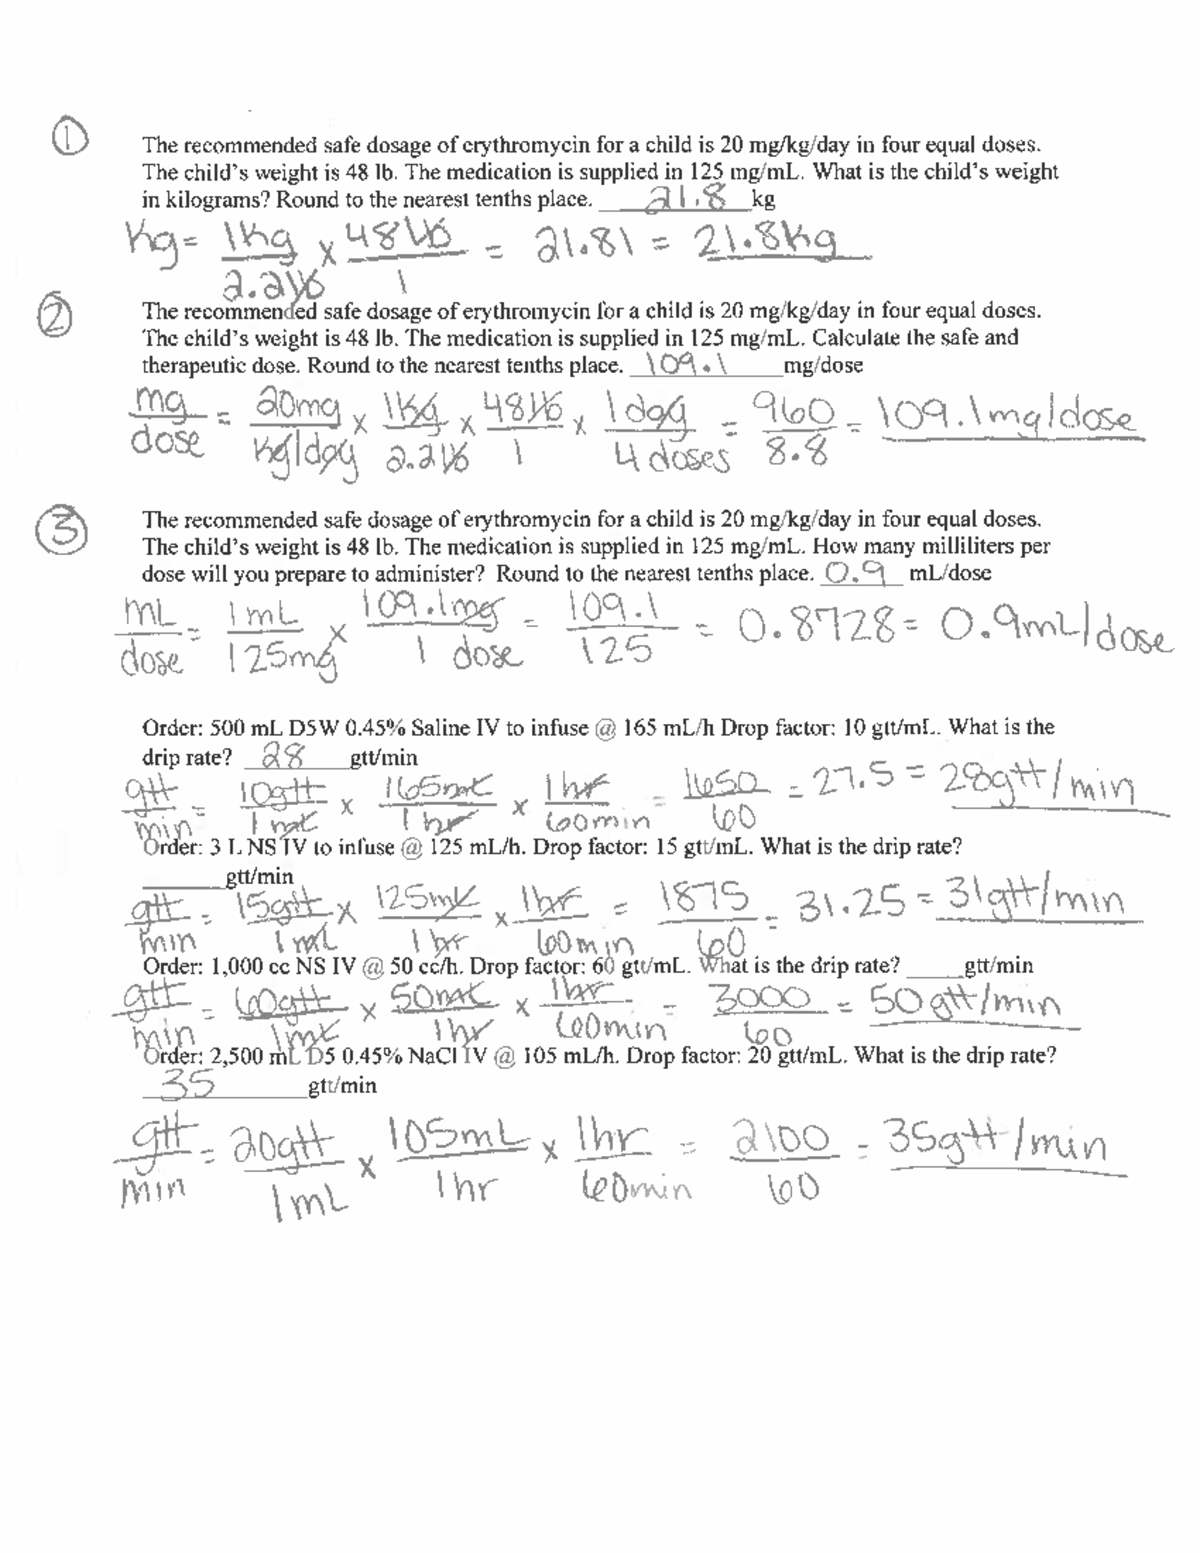 ① The recommended safe dosage of erythromycin for a child is 20 mg/kg/day in four equal doses.
The child's weight is 48 lb. The medication is supplied in 125 mg/mL. What is the child's weight
in kilograms? Round to the nearest tenths place. 21.8 kg
Kg = 1kg / 2.2lb x 48lb / 1 = 21.81 = 21.8kg
② The recommended safe dosage of erythromycin for a child is 20 mg/kg/day in four equal doses.
The child's weight is 48 lb. The medication is supplied in 125 mg/mL. Calculate the safe and
therapeutic dose. Round to the nearest tenths place. 109.1 mg/dose
mg / dose = 20mg / kg/day x 1kg / 2.2lb x 48lb / 1 x 1day / 4 doses = 960 / 8.8 = 109.1mg/dose
③ The recommended safe dosage of erythromycin for a child is 20 mg/kg/day in four equal doses.
The child's weight is 48 lb. The medication is supplied in 125 mg/mL. How many milliliters per
dose will you prepare to administer? Round to the nearest tenths place. 0.9 mL/dose
mL / dose = 1mL / 125mg x 109.1mg / 1 dose = 109.1 / 125 = 0.8728 = 0.9mL/dose
Order: 500 mL D5W 0.45% Saline IV to infuse @ 165 mL/h Drop factor: 10 gtt/mL. What is the
drip rate? 28 gtt/min
gtt / min = 10gtt / 1mL x 165mL / 1hr x 1hr / 60min = 1650 / 60 = 27.5 = 28gtt/min
Order: 3 L NS IV to infuse @ 125 mL/h. Drop factor: 15 gtt/mL. What is the drip rate?
gtt/min
gtt / min = 15gtt / 1mL x 125mL / 1hr x 1hr / 60min = 1875 / 60 = 31.25 = 31gtt/min
Order: 1,000 cc NS IV @ 50 cc/h. Drop factor: 60 gtt/mL. What is the drip rate? gtt/min
gtt / min = 60gtt / 1mL x 50mL / 1hr x 1hr / 60min = 3000 / 60 = 50gtt/min
Order: 2,500 mL D5 0.45% NaCl IV @ 105 mL/h. Drop factor: 20 gtt/mL. What is the drip rate?
35 gtt/min
gtt / min = 20gtt / 1mL x 105mL / 1hr x 1hr / 60min = 2100 / 60 = 35gtt/min